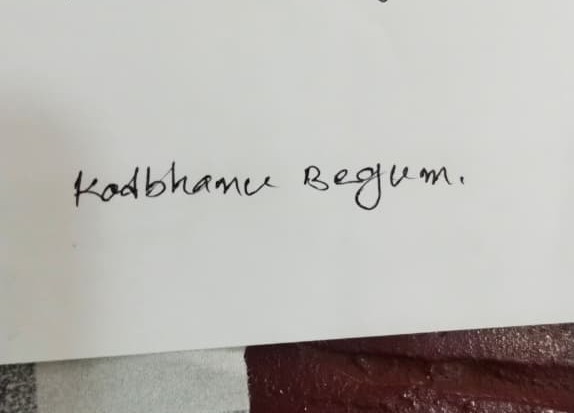 Kodbhanu Begum.